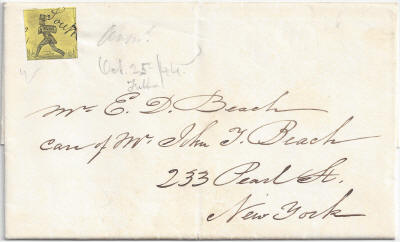 Oct. 25 /44.
Mr. E. D. Beach
care of Mr. John T. Beach
233 Pearl St.
New York